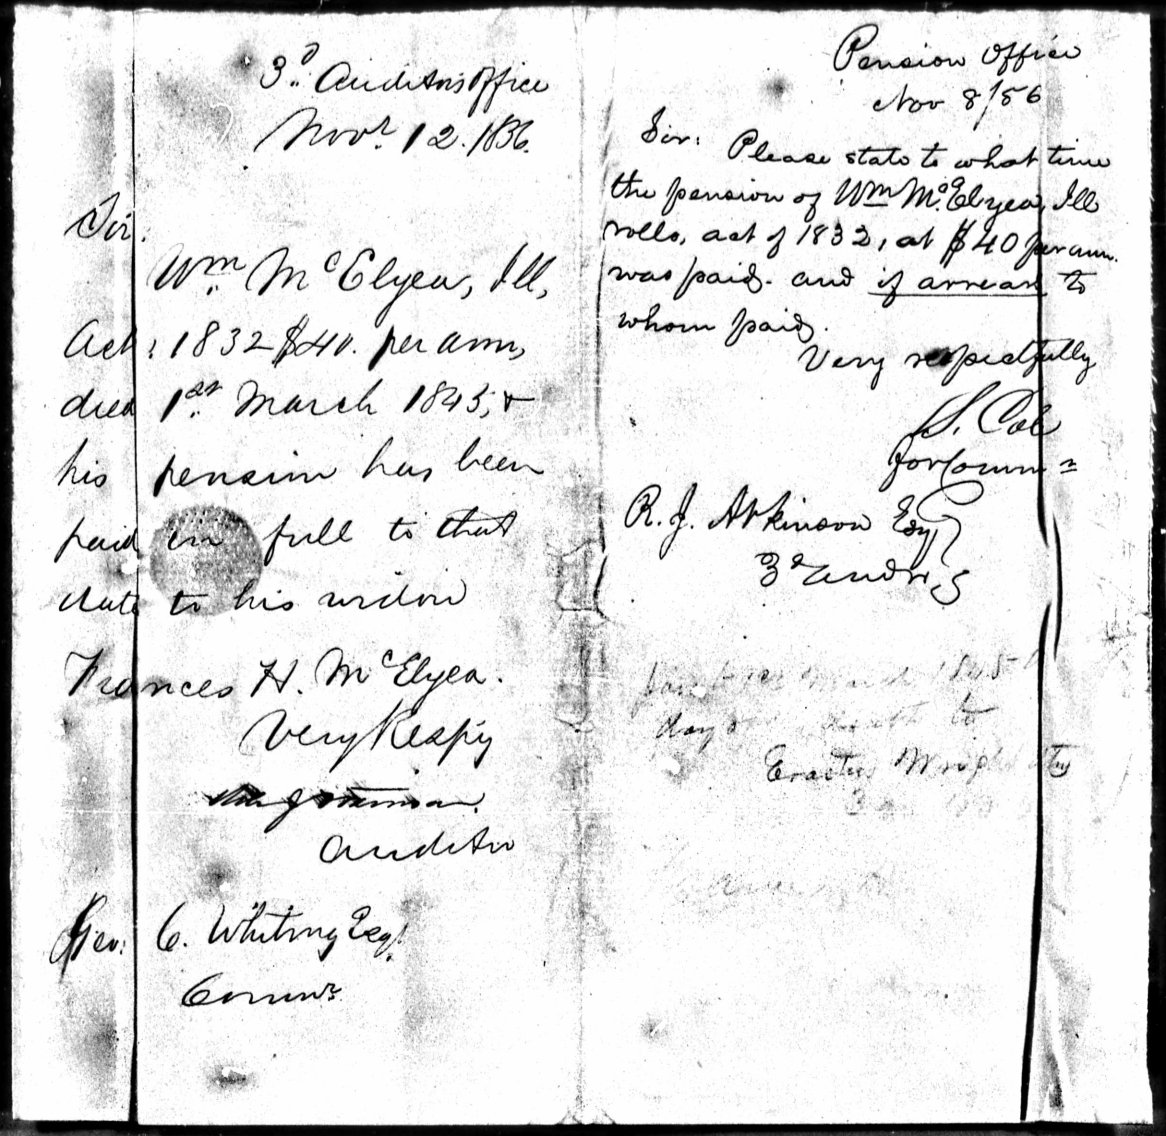 3d. Auditors Office
Novr. 12. 1856.
Sir.
Wm. McElyea, Ill,
Act: 1832 $40. per ann,
died 1st. March 1845, &
his pension has been
paid in full to that
date to his widow
Frances H. McElyea.
Very Respy
Auditor
Geo: C. Whiting Esq.
Commr.
Pension Office
Nov 8/56
Sir: Please state to what time
the pension of Wm McElyea, Ill
rolls, act of 1832, at $40 per ann.
was paid. and if arrears to
whom paid.
Very respectfully
S. Cole
for Commr
R. J. Atkinson Esq
3d Audr.
March 1845
day death to
Erastus Wright atty